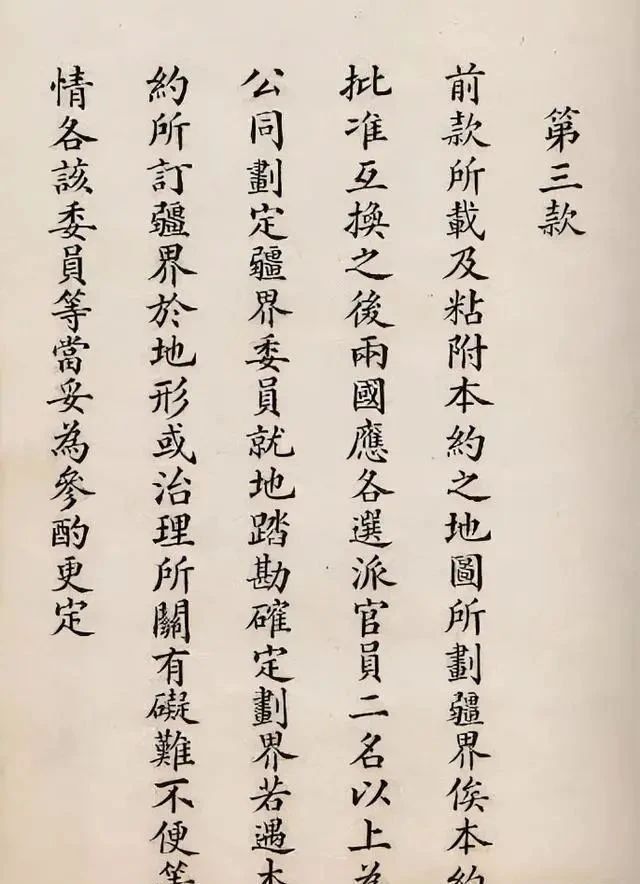 第三款
前款所載及粘附本約之地圖所劃疆界俟本約
批准互換之後兩國應各選派官員二名以上為
公同劃定疆界委員就地踏勘確定劃界若遇本
約所訂疆界於地形或治理所關有礙難不便等
情各該委員等當妥為參酌更定